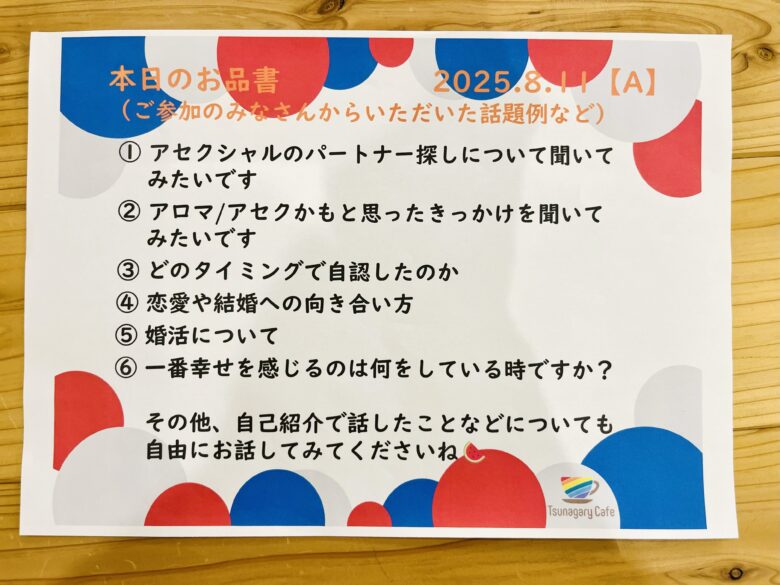 本日のお品書 2025.8.11【A】
(ご参加のみなさんからいただいた話題例など)
① アセクシャルのパートナー探しについて聞いて
みたいです
② アロマ/アセクかもと思ったきっかけを聞いて
みたいです
③ どのタイミングで自認したのか
④ 恋愛や結婚への向き合い方
⑤ 婚活について
⑥ 一番幸せを感じるのは何をしている時ですか？
その他、自己紹介で話したことなどについても
自由にお話してみてくださいね🍉
Tsunagary Cafe